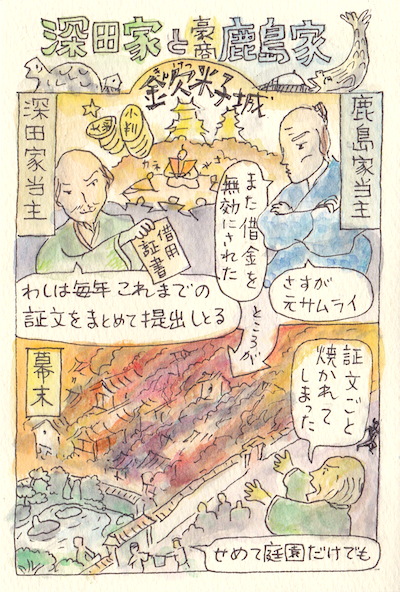 深田家と豪商鹿島家
金欠米子城
鹿島家当主
深田家当主
小判
また借金を
無効にされた
さすが
元サムライ
借用
証書
わしは毎年これまでの
証文をまとめて提出しとる
ところが
幕末
証文ごと
焼かれて
しまった
せめて庭園だけでも